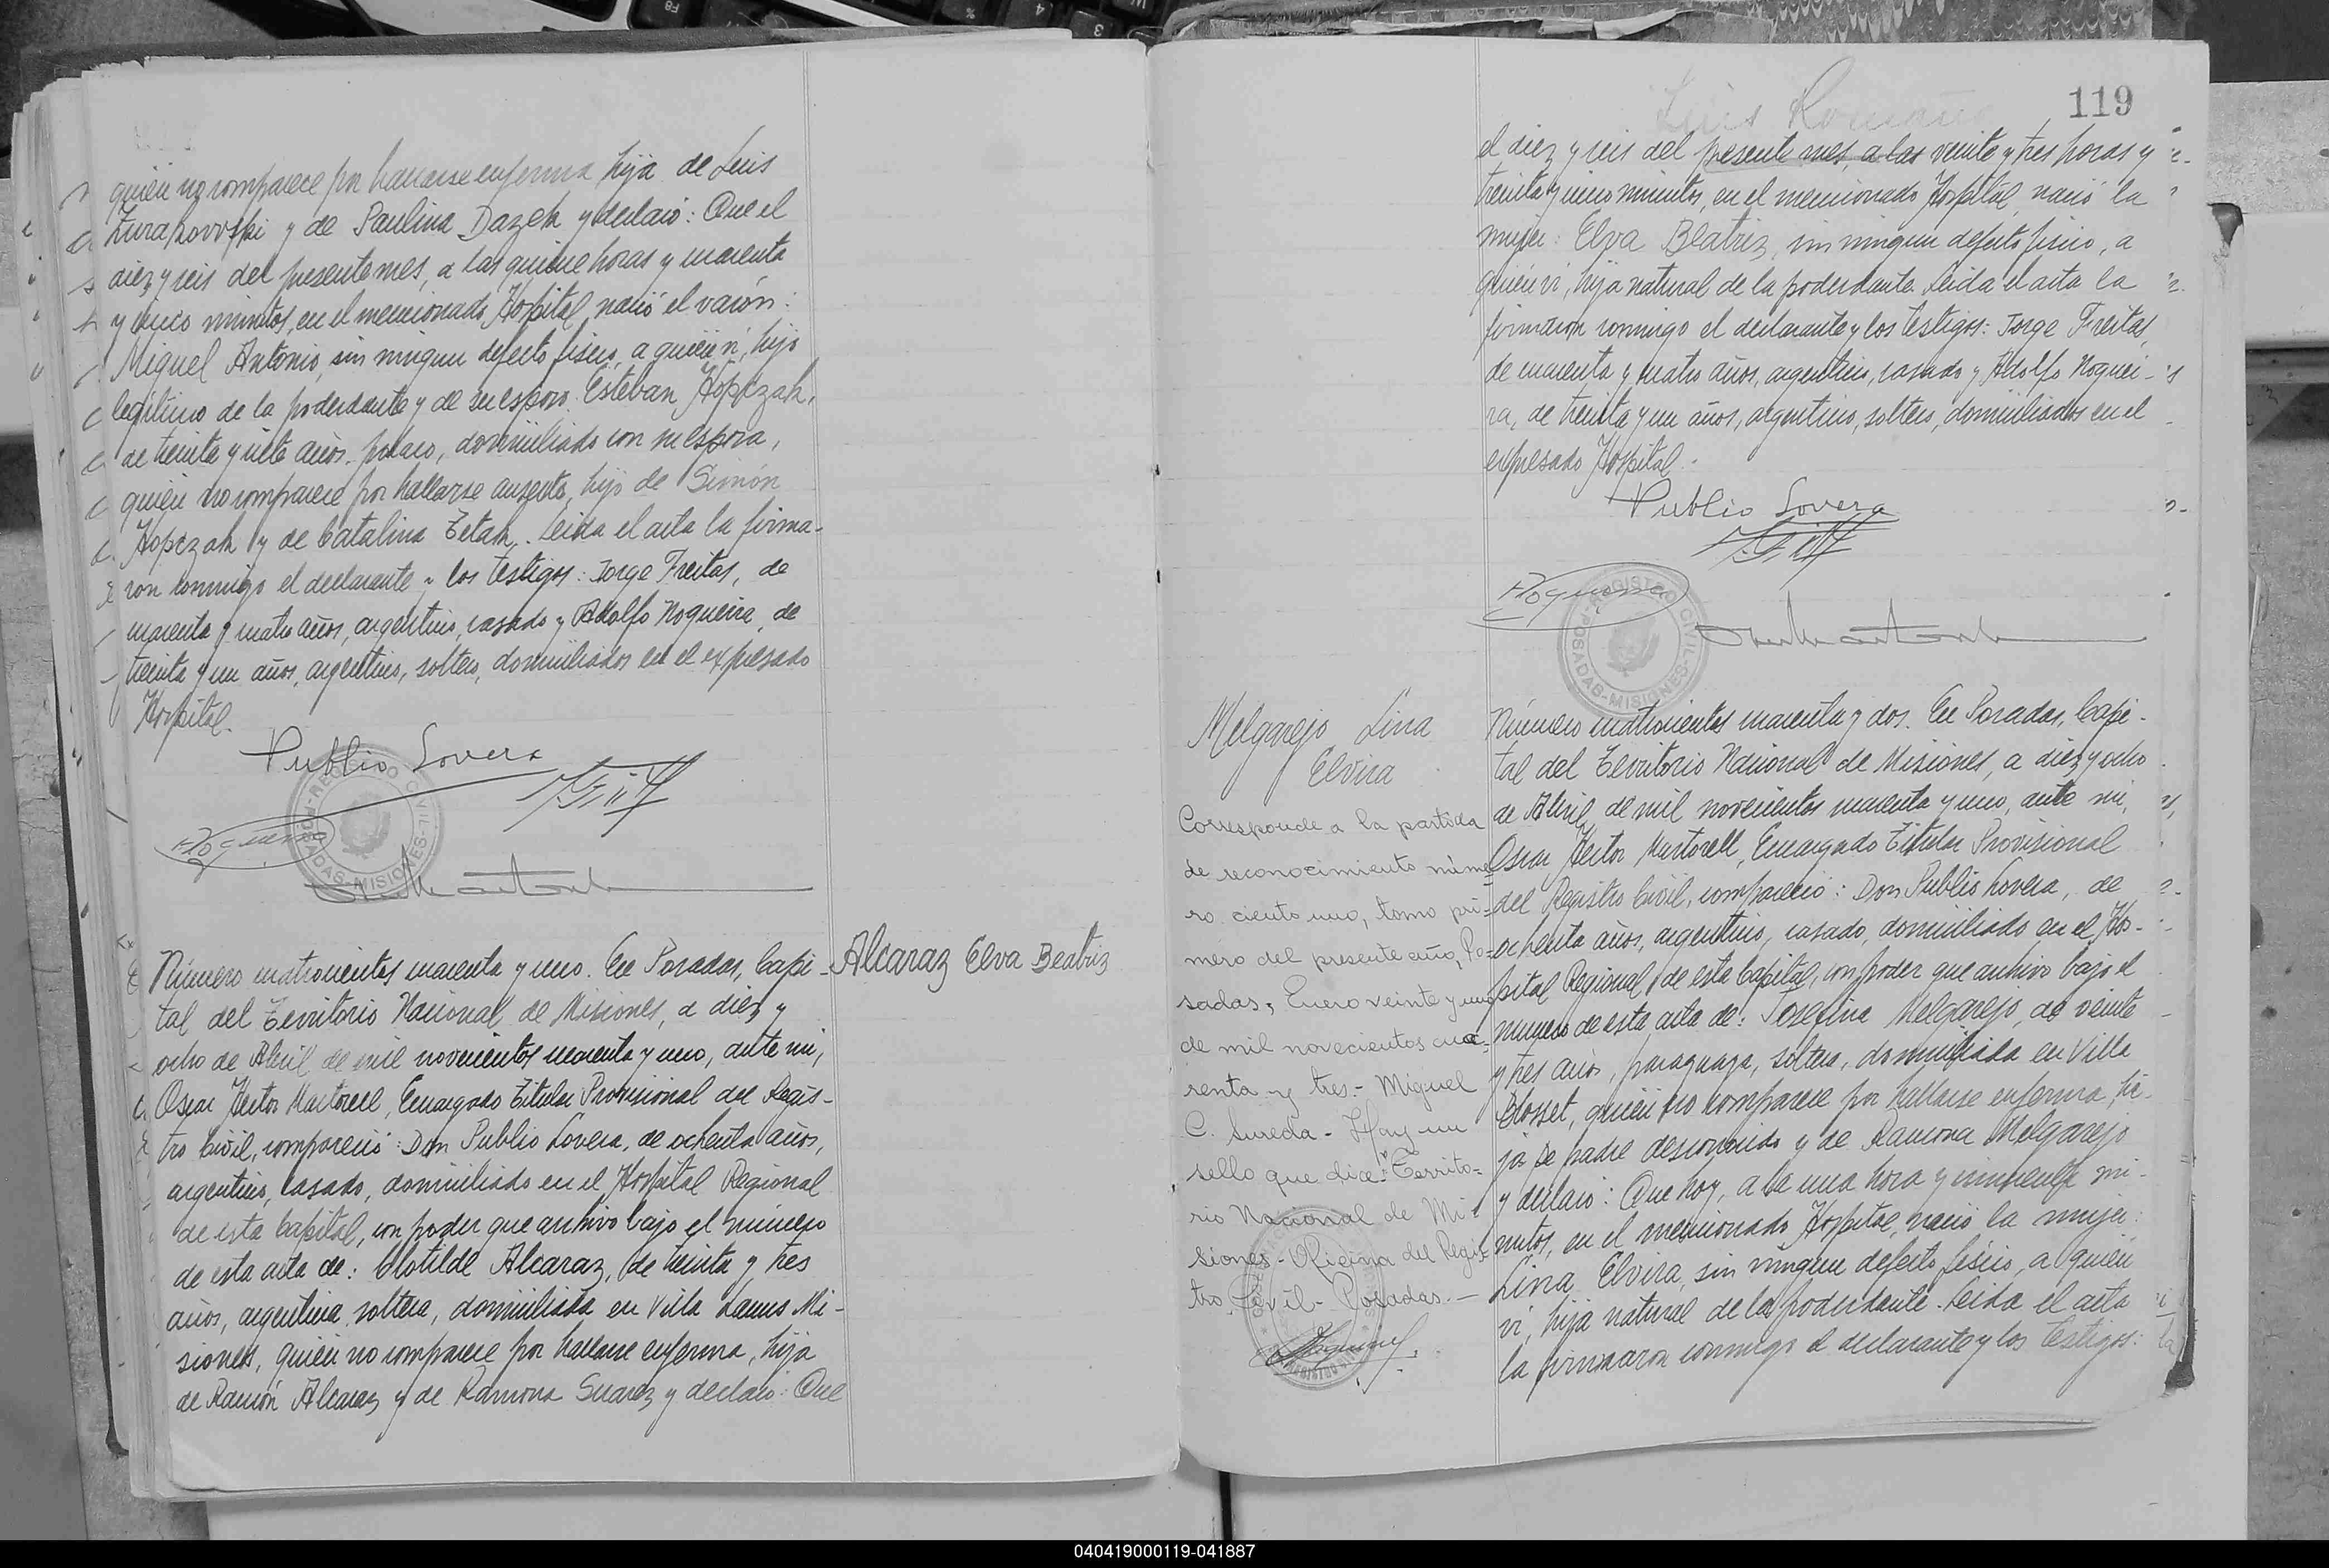 quién no comparece por hallarse enferma, hija de Luis
Zurakovski y de Paulina Dazek y declaró: Que el
diez y seis del presente mes, a las quince horas y cuarenta
y cinco minutos, en el mencionado Hospital, nació el varón:
Miguel Antonio, sin ningun defecto fisico, a quién ví, hijo
legítimo de la poderdante y de su esposo Esteban Hopczak,
de treinta y siete años, polaco, domiciliado con su esposa,
quién no comparece por hallarse ausente, hijo de Simón
Hopczak y de Catalina Tetak. Leida el acta la firma-
ron conmigo el declarante y los testigos: Jorge Freitas, de
cuarenta y cuatro años, argentino, casado y Adolfo Nogueira, de
treinta y un años, argentino, soltero, domiciliados en el expresado
Hospital.
Publio Lovera
Nogueira
REGISTRO CIVIL
POSADAS-MISIONES
Número cuatrocientos cuarenta y uno. En Posadas, Capi-
Alcaraz Elva Beatriz
tal del Territorio Nacional de Misiones, a diez y
ocho de Abril de mil novecientos cuarenta y uno, ante mi,
Oscar Hector Martorell, Encargado Titular Provisional del Regis-
tro Civil, compareció: Don Publio Lovera, de ochenta años,
argentino, casado, domiciliado en el Hospital Regional
de esta Capital, con poder que archivo bajo el número
de esta acta de: Clotilde Alcaraz, de treinta y tres
años, argentina, soltera, domiciliada en Villa Lanus Mi-
siones, quién no comparece por hallarse enferma, hija
de Ramón Alcaraz y de Ramona Suarez y declaró: Que
119
el diez y seis del presente mes, a las veinte y tres horas y
treinta y cinco minutos, en el mencionado Hospital, nació la
mujer: Elva Beatriz, sin ningun defecto fisico, a
quién ví, hija natural de la poderdante. Leida el acta la
firmaron conmigo el declarante y los testigos: Jorge Freitas,
de cuarenta y cuatro años, argentino, casado y Adolfo Noguei-
ra, de treinta y un años, argentino, soltero, domiciliados en el
expresado Hospital.-
Publio Lovera
Nogueira
REGISTRO CIVIL
POSADAS-MISIONES
Melgarejo Lina
Elvira
Corresponde a la partida
de reconocimiento núme
ro ciento uno, tomo pri-
mero del presente año, Po-
sadas, Enero veinte y uno
de mil novecientos cua-
renta y tres.- Miguel
C. Hay un
sello que dice: "Territo-
rio Nacional de Mi-
siones - Oficina del Regis-
tro Civil - Posadas.-
Número cuatrocientos cuarenta y dos. En Posadas, Capi-
tal del Territorio Nacional de Misiones, a diez y ocho
de Abril, de mil novecientos cuarenta y uno, ante mi,
Oscar Hector Martorell, Encargado Titular Provisional
del Registro Civil, compareció: Don Publio Lovera, de
ochenta años, argentino, casado, domiciliado en el Hos-
pital Regional de esta Capital, con poder que archivo bajo el
numero de esta acta de: Josefina Melgarejo, de veinte
y tres años, paraguaya, soltera, domiciliada en Villa
Blosset, quién no comparece por hallarse enferma, hi-
ja de padre desconocido y de Ramona Melgarejo
y declaró: Que hoy, a la una hora y cincuenta mi-
nutos, en el mencionado Hospital, nació la mujer:
Lina Elvira, sin ningun defecto fisico, a quién
ví, hija natural de la poderdante. Leida el acta
la firmaron conmigo el declarante y los testigos:
040419000119-041887